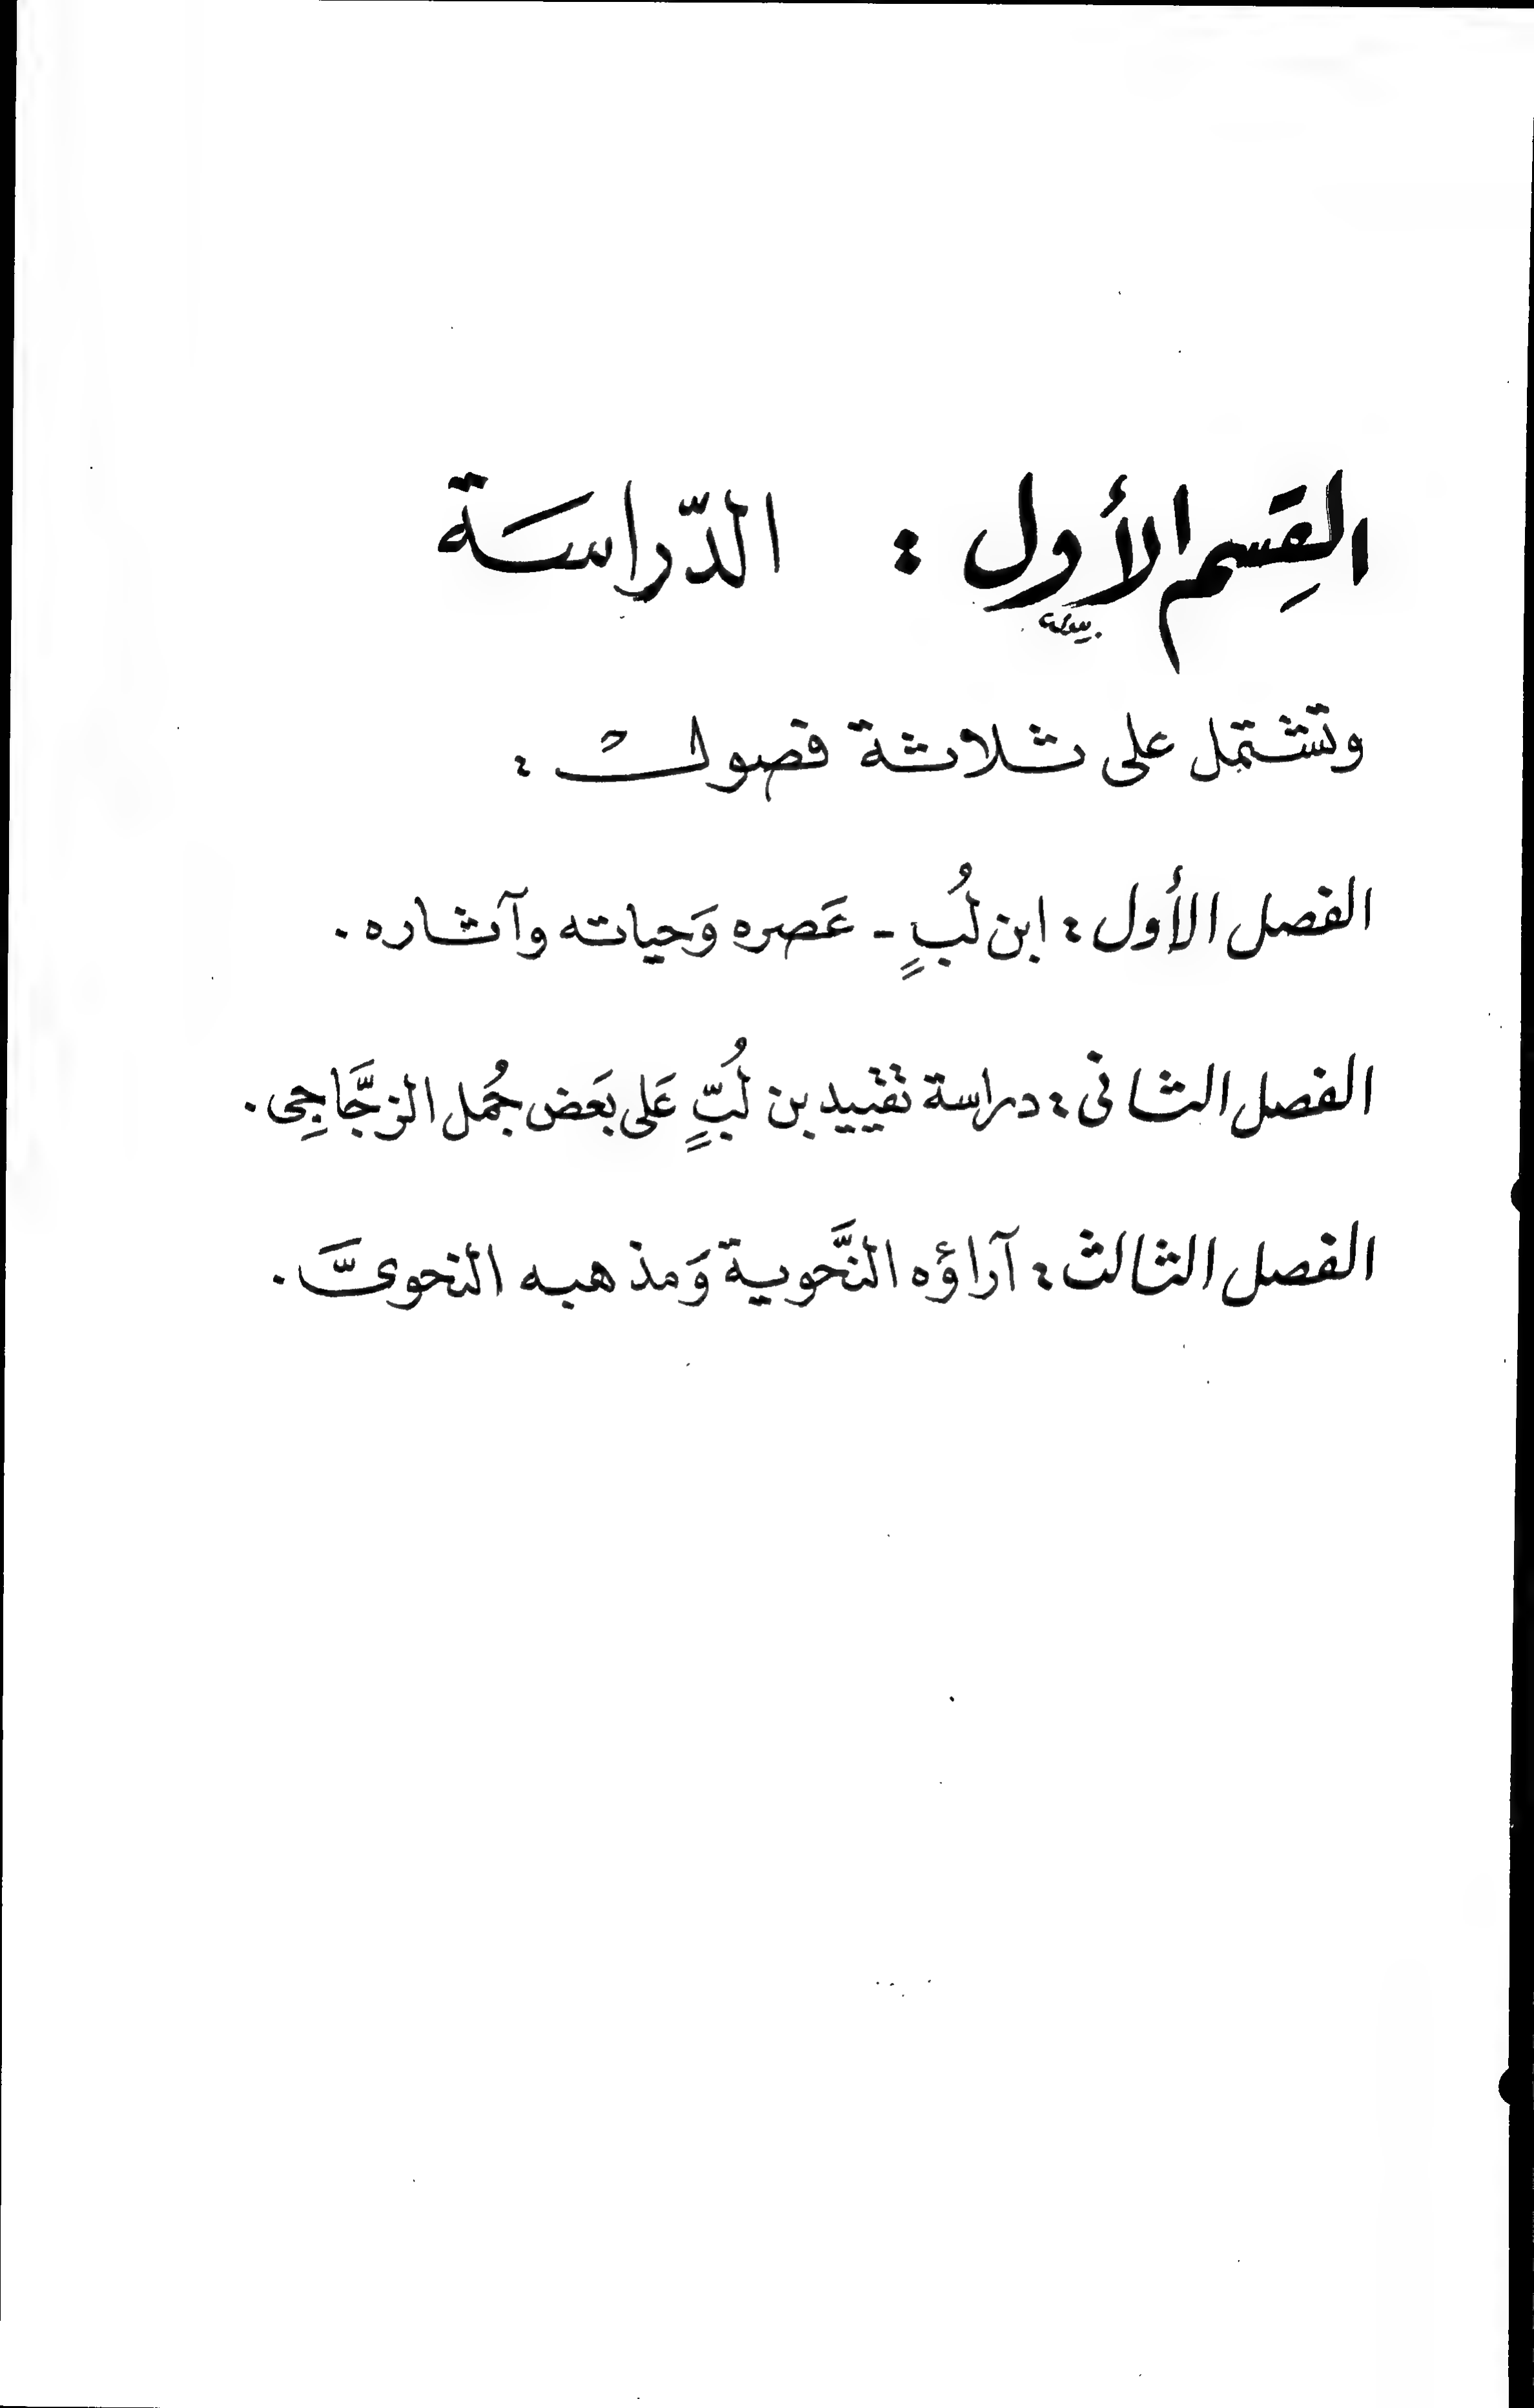 القَسِم الأول : الدّراسَة
وتشتمل على ثلاثة فصول :
الفصل الأول : ابن لُبٍ - عَصره وَحياته وآثاره .
الفصل الثانى : دراسة تقييد بن لُبٍّ عَلى بَعَض جُمَل الزجَّاجِى .
الفصل الثالث : آراؤه النَّحوية وَمذهبه النحوىَّ .